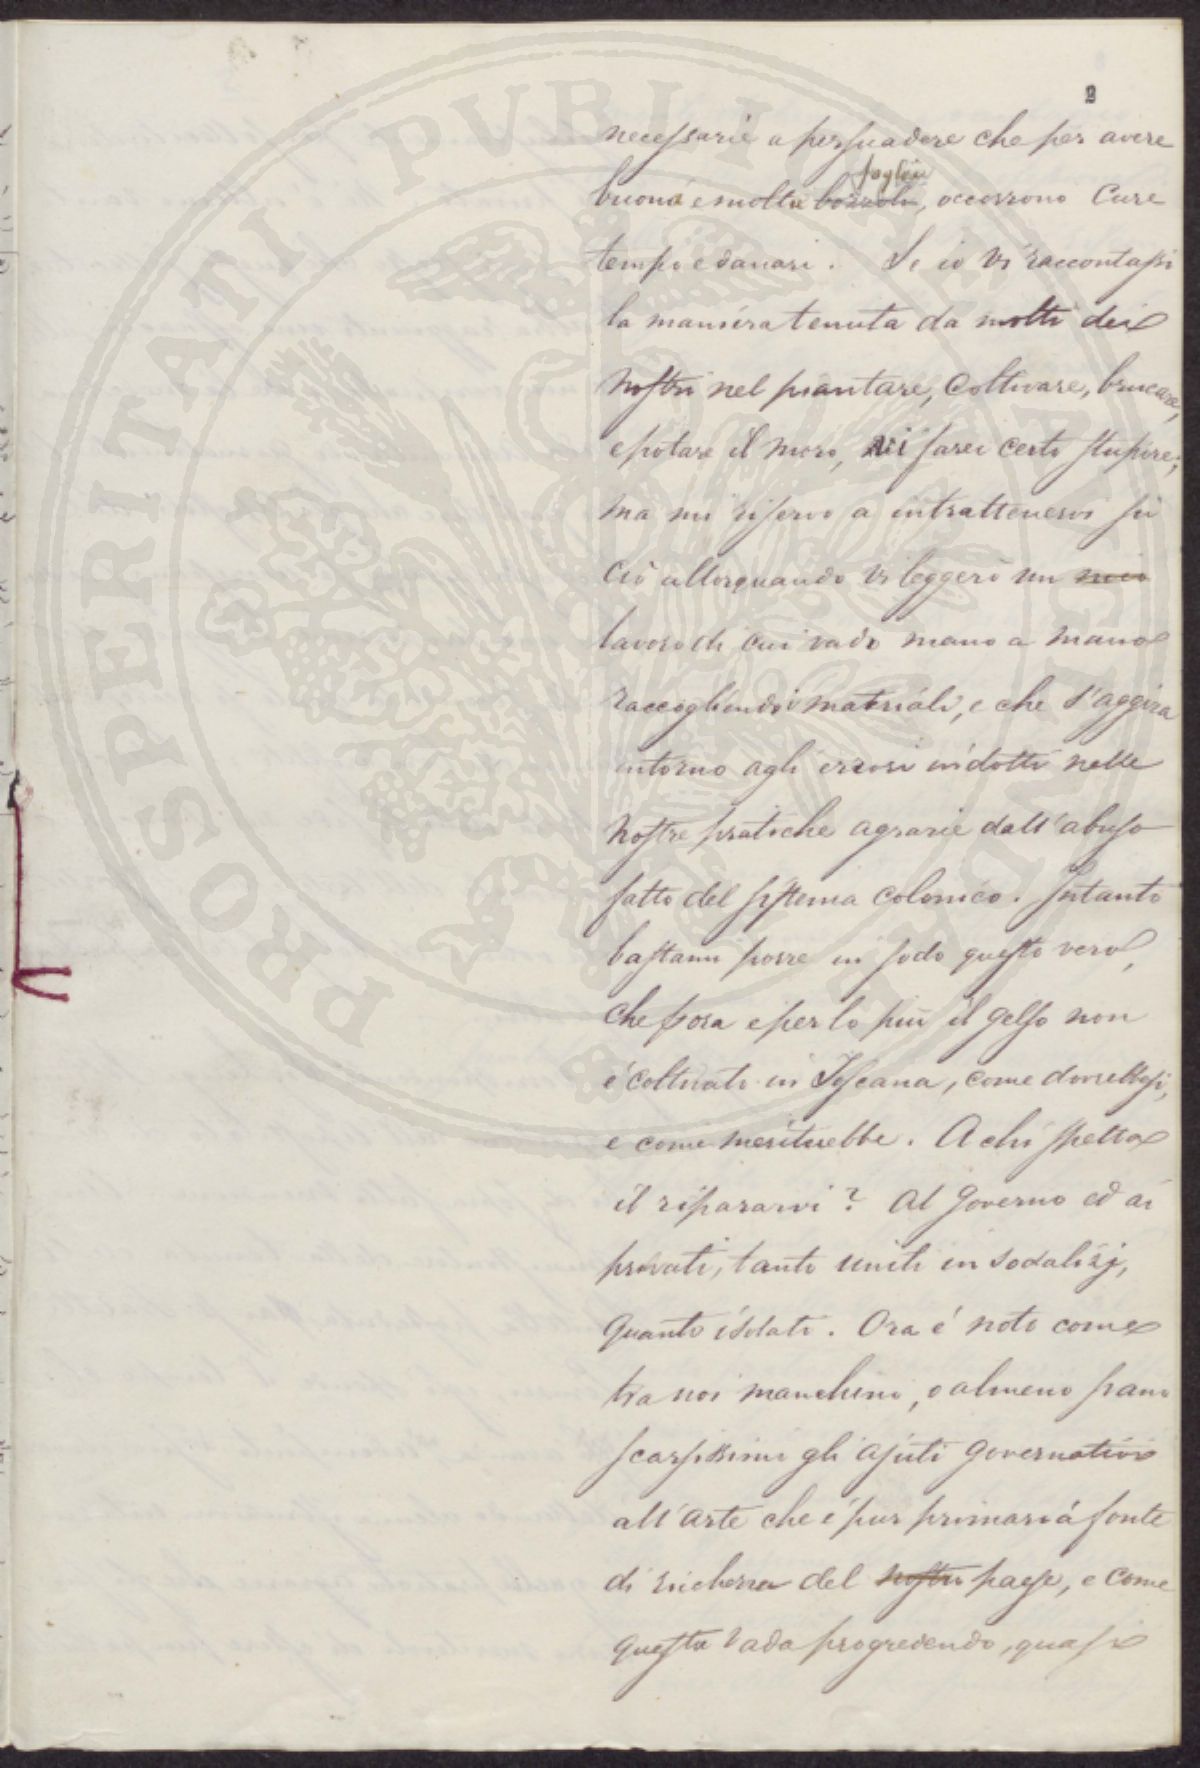 2
necessarie a persuadere che per avere
foglia
buona e molta bozzoli, occorrono cure
tempo e danari. Se io vi raccontassi
la maniera tenuta da molti dei
nostri nel piantare, coltivare, brucare,
e potare il moro, vi farei certo stupire;
ma mi riservo a intrattenervi su
ciò allorquando vi leggerò un mio
lavoro di cui vado mano a mano
raccogliendo i materiali, e che s'aggira
intorno agli errori indotti nelle
nostre pratiche agrarie dall'abuso
fatto del sistema colonico. Intanto
bastami porre in sodo questo vero,
che fora e per lo più il gelso non
è coltivato in Toscana, come dovrebbesi,
e come meriterebbe. A chi spetta
il ripararvi? Al Governo ed ai
privati, tanto uniti in sodalizj,
quanto isolati. Ora è noto come
tra noi manchino, o almeno siano
scarsissimi gli ajuti governativi
all'arte che è pur primaria fonte
di ricchezza del nostro paese, e come
questa vada progredendo, quasi
PROSPERITATI PVBLICAE AVGENDAE